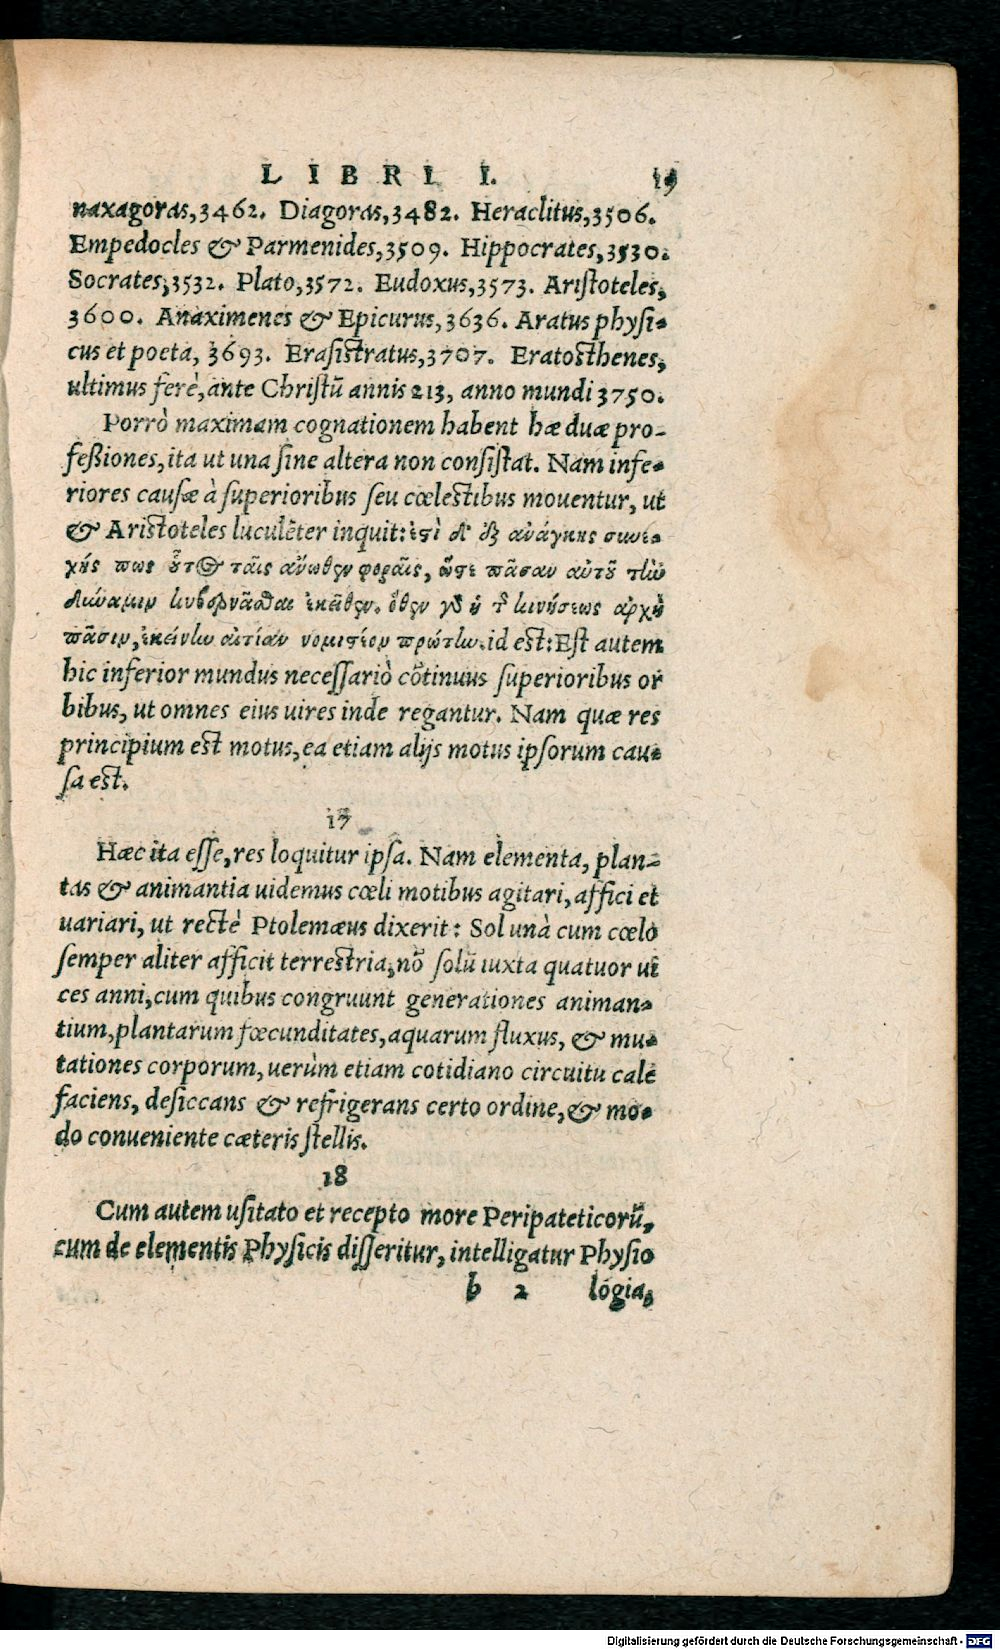 LIBRI I. 19
naxagoras,3462. Diagoras,3482. Heraclitus,3506.
Empedocles & Parmenides,3509. Hippocrates,3530.
Socrates,3532. Plato,3572. Eudoxus,3573. Aristoteles,
3600. Anaximenes & Epicurus,3636. Aratus physi-
cus et poeta, 3693. Erasistratus,3707. Eratosthenes,
ultimus ferè,ante Christū annis 213, anno mundi 3750.
Porrò maximam cognationem habent hæ duæ pro-
feßiones,ita ut una sine altera non consistat. Nam infe-
riores causæ à superioribus seu cœlestibus mouentur, ut
& Aristoteles luculēter inquit:ἐστὶ δ' ἐξ ἀνάγκης συνε-
χής πως οὗτος ταῖς ἄνωθεν φοραῖς, ὥστε πᾶσαν αὐτοῦ τὴν
δύναμιν κυβερνᾶσθαι ἐκεῖθεν. ὅθεν γὸ ἡ τ͂ κινήσεως ἀρχὴ
πᾶσιν,ἐκείνην αἰτίαν νομιστέον πρώτην.id est:Est autem
hic inferior mundus necessariò cōtinuus superioribus or
bibus, ut omnes eius uires inde regantur. Nam quæ res
principium est motus,ea etiam alijs motus ipsorum cau-
sa est.
17
Hæc ita esse,res loquitur ipsa. Nam elementa, plan-
tas & animantia uidemus cœli motibus agitari,affici et
uariari, ut rectè Ptolemæus dixerit: Sol unà cum cœlo
semper aliter afficit terrestria,nō solū iuxta quatuor ui
ces anni,cum quibus congruunt generationes animan-
tium,plantarum fœcunditates,aquarum fluxus, & mu-
tationes corporum,uerùm etiam cotidiano circuitu cale
faciens, desiccans & refrigerans certo ordine,& mo-
do conueniente cæteris stellis.
18
Cum autem usitato et recepto more Peripateticorū,
cum de elementis Physicis disseritur, intelligatur Physio
b 2 logia,
Digitalisierung gefördert durch die Deutsche Forschungsgemeinschaft - DFG